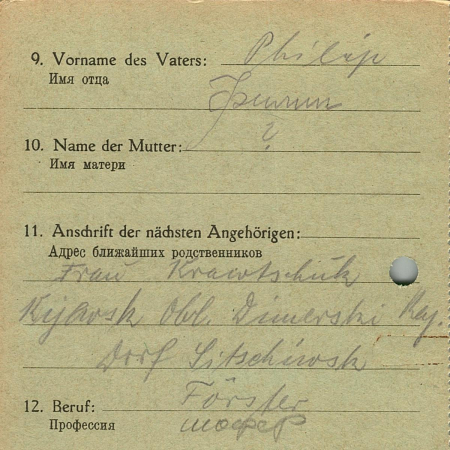 9. Vorname des Vaters: Philip
Имя отца
Филипп
10. Name der Mutter: ?
Имя матери
11. Anschrift der nächsten Angehörigen:
Адрес ближайших родственников
Frau Krawtschuk
Kijewsk Obl. Dimerski Raj.
Dorf Sitschiwsk
12. Beruf: Förster
Профессия шофер